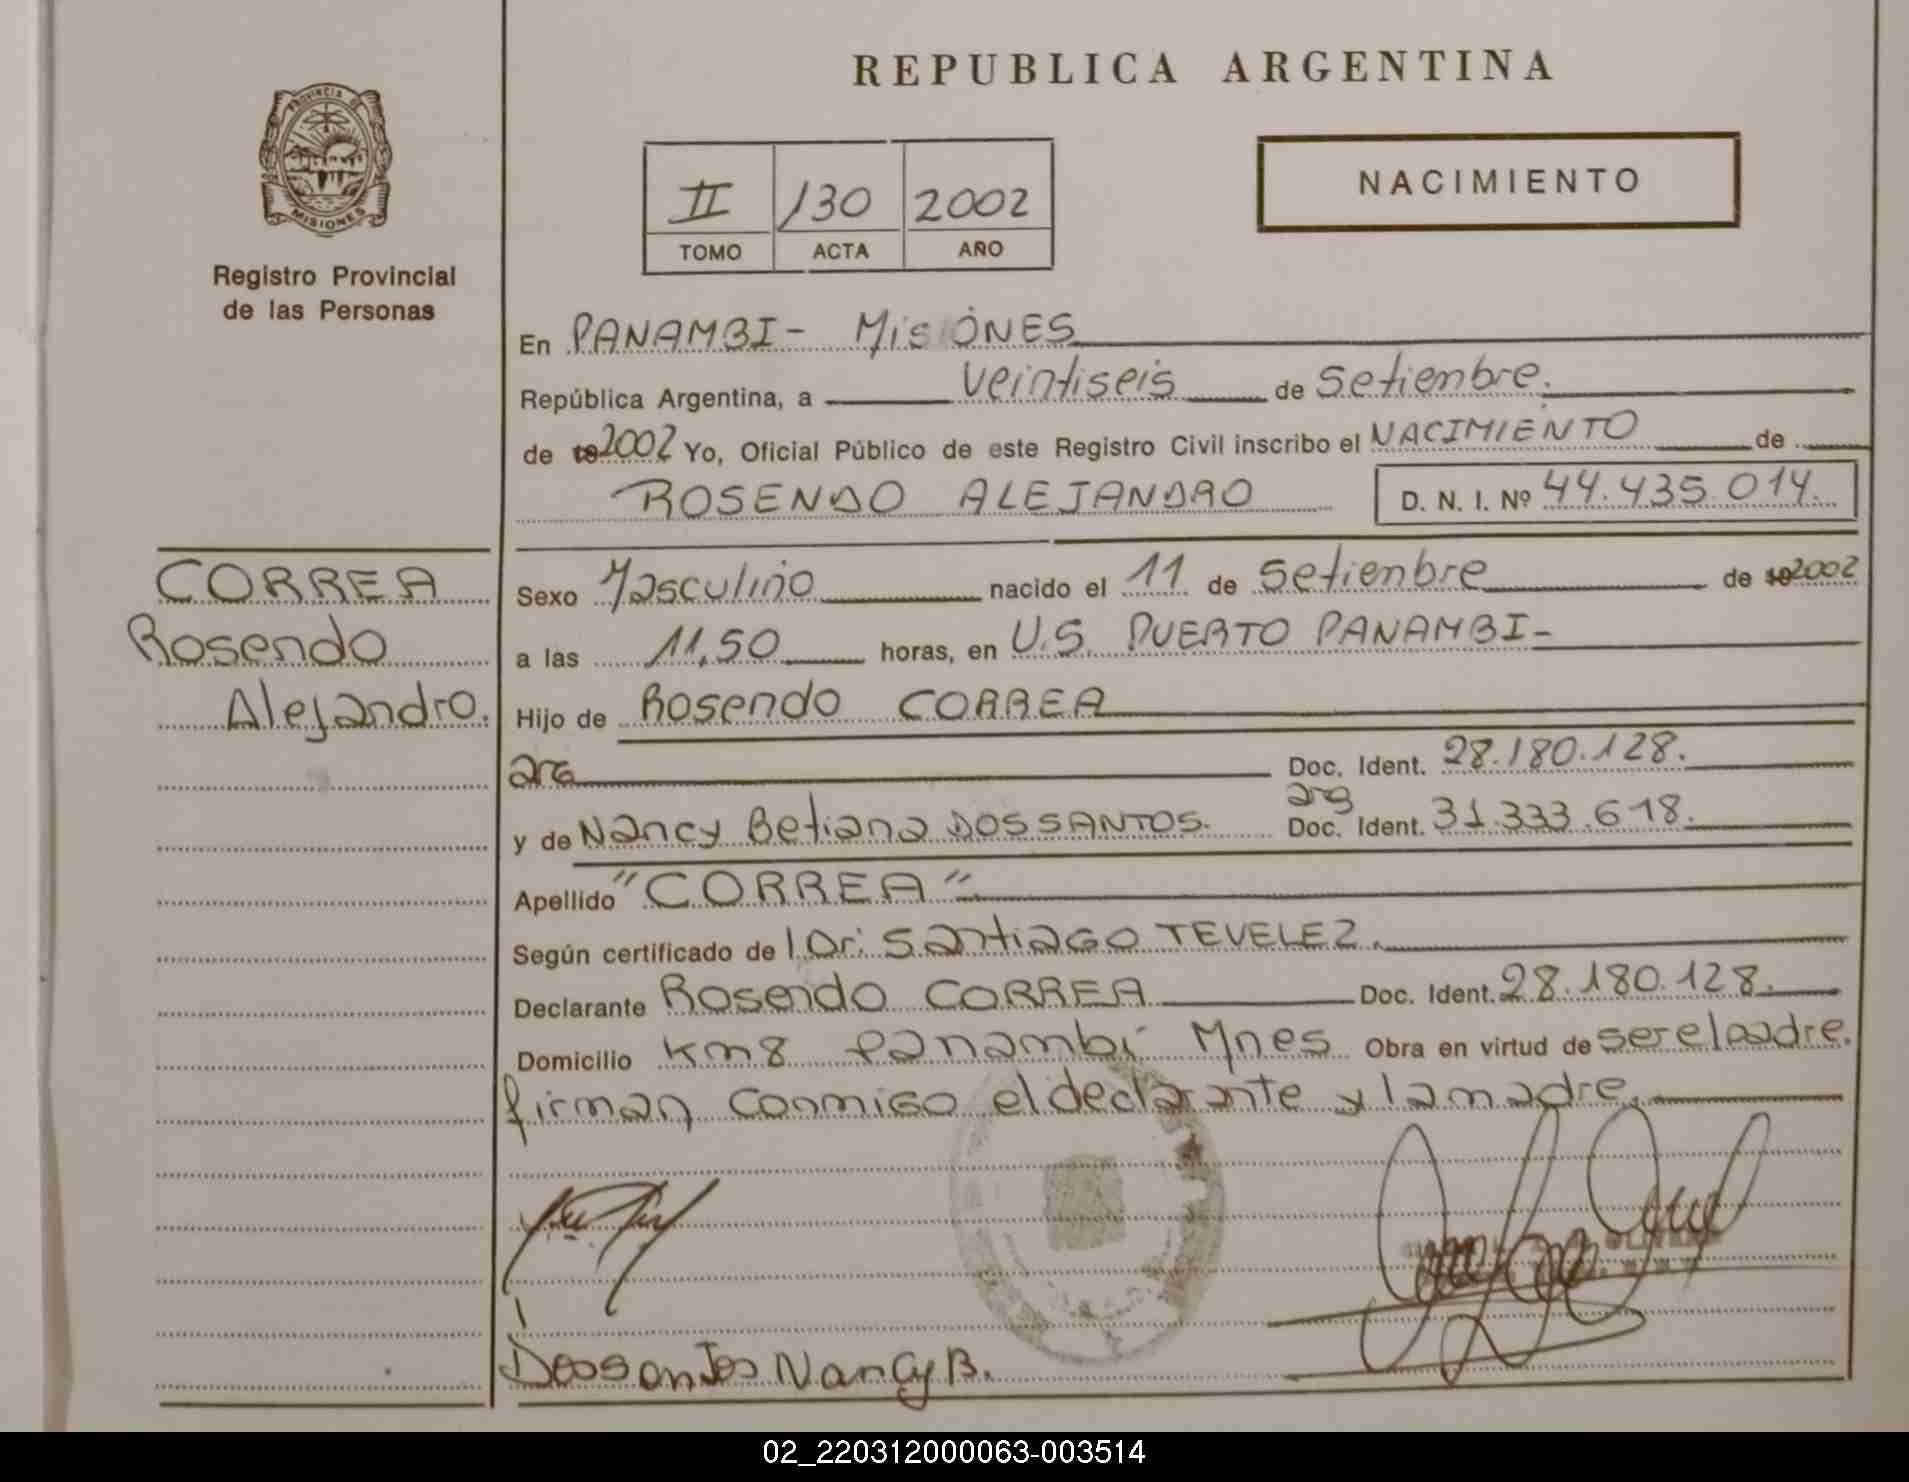 REPUBLICA ARGENTINA
PROVINCIA DE
MISIONES
Registro Provincial
de las Personas
II /130 2002
TOMO ACTA AÑO
NACIMIENTO
En PANAMBI - MisiONES
República Argentina, a veintiseis de setiembre.
de 19 2002 Yo, Oficial Público de este Registro Civil inscribo el NACIMIENTO de
ROSENDO ALEJANDRO D. N. I. Nº 44.435.014.
CORREA
Rosendo
Alejandro.
Sexo Masculino nacido el 11 de setiembre de 19 2002
a las 11,50 horas, en U.S. PUERTO PANAMBI-
Hijo de Rosendo CORREA
arg Doc. Ident. 28.180.128.
arg
y de Nancy Betiana DOSSANTOS. Doc. Ident. 31.333.618.
Apellido "CORREA"
Según certificado de Dr: Santiago TEVELEZ.
Declarante Rosendo CORREA Doc. Ident. 28.180.128.
Domicilio Km 8 Panambi Mnes Obra en virtud de ser el padre.
firman conmigo el declarante y la madre.
Dossantos Nancy B.
02_220312000063-003514